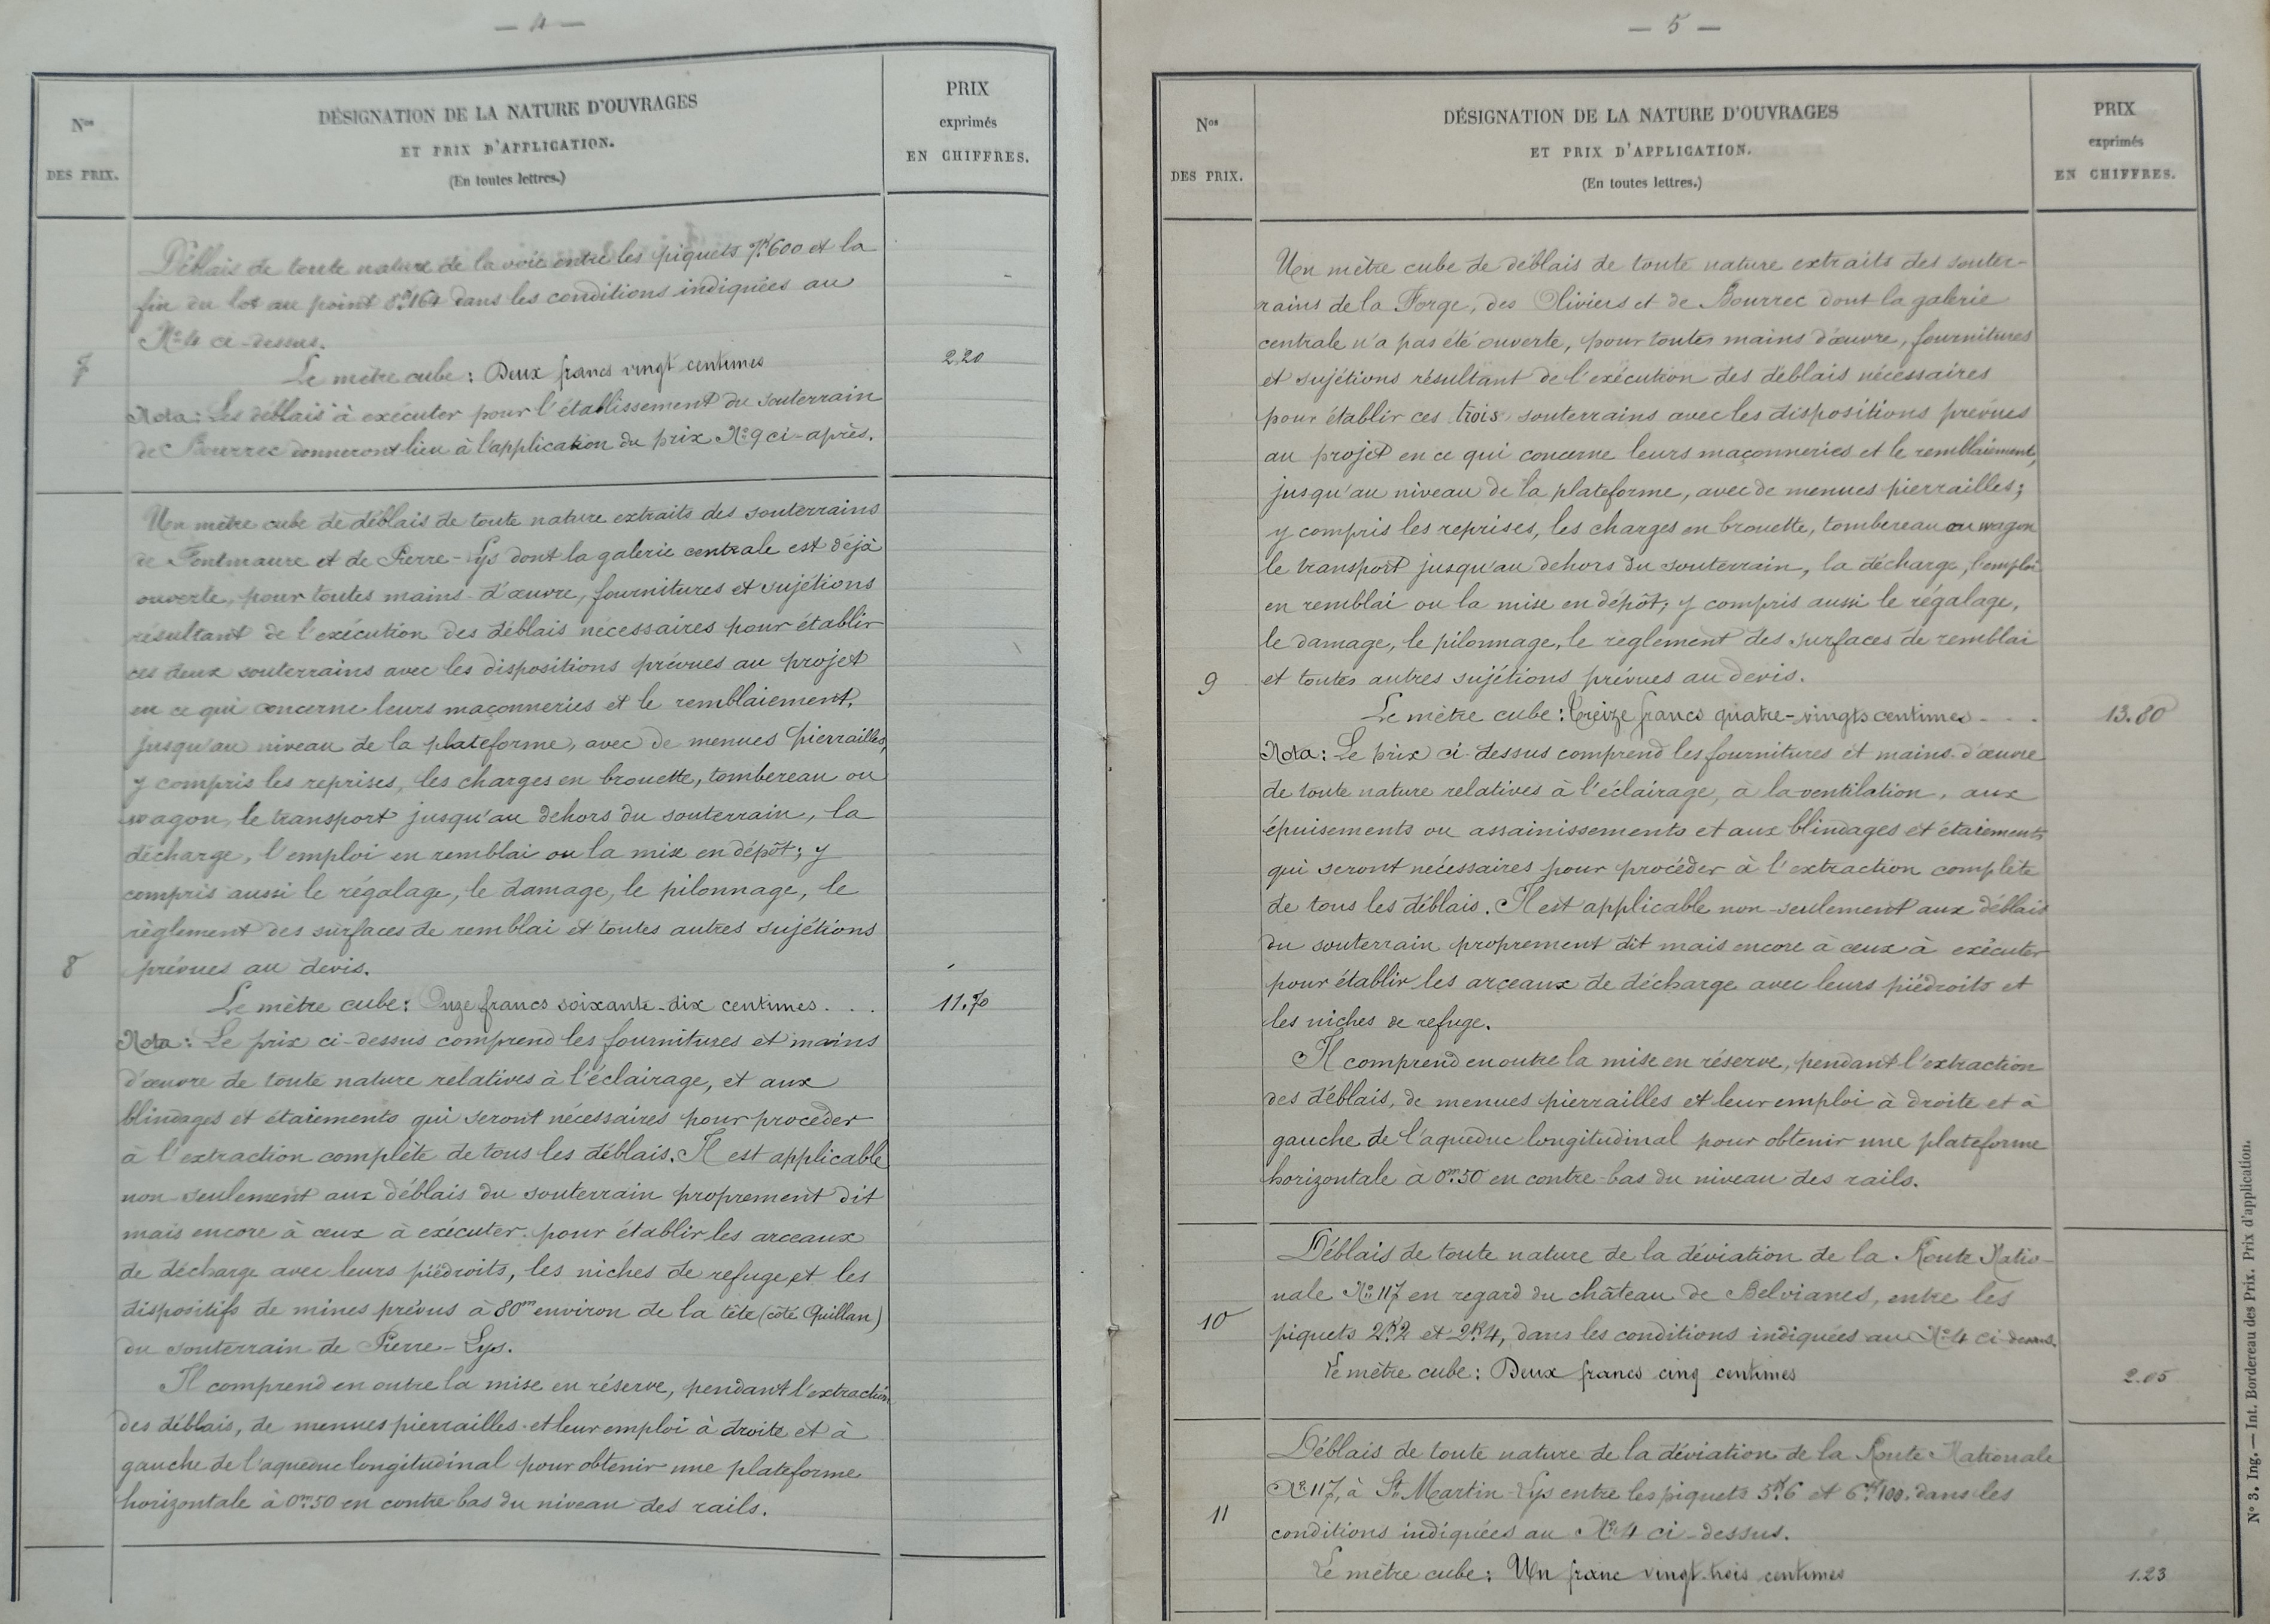 — 4 —
Nos
DES PRIX.
DÉSIGNATION DE LA NATURE D'OUVRAGES
ET PRIX D'APPLICATION.
(En toutes lettres.)
PRIX
exprimés
EN CHIFFRES.
Déblais de toute nature de la voie entre les piquets 7k600 et la
fin du lot au point 8k164 dans les conditions indiquées au
No 4 ci-dessus.
7
Le mètre cube : Deux francs vingt centimes
2.20
Nota : Les déblais à exécuter pour l'établissement du souterrain
de Bourrec donneront lieu à l'application du prix No 9 ci-après.
Un mètre cube de déblais de toute nature extraits des souterrains
de Fontmaure et de Pierre-Lys dont la galerie centrale est déjà
ouverte, pour toutes mains d'œuvre, fournitures et sujétions
résultant de l'exécution des déblais nécessaires pour établir
ces deux souterrains avec les dispositions prévues au projet
en ce qui concerne leurs maçonneries et le remblaiement,
jusqu'au niveau de la plateforme, avec de menues pierrailles,
y compris les reprises, les charges en brouette, tombereau ou
wagon, le transport jusqu'au dehors du souterrain, la
décharge, l'emploi en remblai ou la mise en dépôt ; y
compris aussi le régalage, le damage, le pilonnage, le
règlement des surfaces de remblai et toutes autres sujétions
8
prévues au devis.
Le mètre cube : Onze francs soixante-dix centimes . . .
11.70
Nota : Le prix ci-dessus comprend les fournitures et mains
d'œuvre de toute nature relatives à l'éclairage, et aux
blindages et étaiements qui seront nécessaires pour procéder
à l'extraction complète de tous les déblais. Il est applicable
non-seulement aux déblais du souterrain proprement dit
mais encore à ceux à exécuter pour établir les arceaux
de décharge avec leurs piédroits, les niches de refuge et les
dispositifs de mines prévus à 80m environ de la tête (côté Quillan)
du souterrain de Pierre-Lys.
Il comprend en outre la mise en réserve, pendant l'extraction
des déblais, de menues pierrailles et leur emploi à droite et à
gauche de l'aqueduc longitudinal pour obtenir une plateforme
horizontale à 0m50 en contre-bas du niveau des rails.
— 5 —
Nos
DES PRIX.
DÉSIGNATION DE LA NATURE D'OUVRAGES
ET PRIX D'APPLICATION.
(En toutes lettres.)
PRIX
exprimés
EN CHIFFRES.
Un mètre cube de déblais de toute nature extraits des souter-
rains de la Forge, des Oliviers et de Bourrec dont la galerie
centrale n'a pas été ouverte, pour toutes mains d'œuvre, fournitures
et sujétions résultant de l'exécution des déblais nécessaires
pour établir ces trois souterrains avec les dispositions prévues
au projet en ce qui concerne leurs maçonneries et le remblaiement,
jusqu'au niveau de la plateforme, avec de menues pierrailles ;
y compris les reprises, les charges en brouette, tombereau ou wagon
le transport jusqu'au dehors du souterrain, la décharge, l'emploi
en remblai ou la mise en dépôt ; y compris aussi le régalage,
le damage, le pilonnage, le règlement des surfaces de remblai
9
et toutes autres sujétions prévues au devis.
Le mètre cube : Treize francs quatre-vingts centimes . . .
13.80
Nota : Le prix ci-dessus comprend les fournitures et mains d'œuvre
de toute nature relatives à l'éclairage, à la ventilation, aux
épuisements ou assainissements et aux blindages et étaiements
qui seront nécessaires pour procéder à l'extraction complète
de tous les déblais. Il est applicable non-seulement aux déblais
du souterrain proprement dit mais encore à ceux à exécuter
pour établir les arceaux de décharge avec leurs piédroits et
les niches de refuge.
Il comprend en outre la mise en réserve, pendant l'extraction
des déblais, de menues pierrailles et leur emploi à droite et à
gauche de l'aqueduc longitudinal pour obtenir une plateforme
horizontale à 0m50 en contre-bas du niveau des rails.
Déblais de toute nature de la déviation de la Route Natio-
nale No 117 en regard du château de Belvianes, entre les
10
piquets 2k2 et 2k4, dans les conditions indiquées au No 4 ci-dessus.
Le mètre cube : Deux francs cinq centimes
2.05
Déblais de toute nature de la déviation de la Route Nationale
No 117, à St Martin-Lys entre les piquets 5k6 et 6k100, dans les
11
conditions indiquées au No 4 ci-dessus.
Le mètre cube : Un franc vingt-trois centimes
1.23
N° 3. Ing. — Int. Bordereau des Prix. Prix d'application.